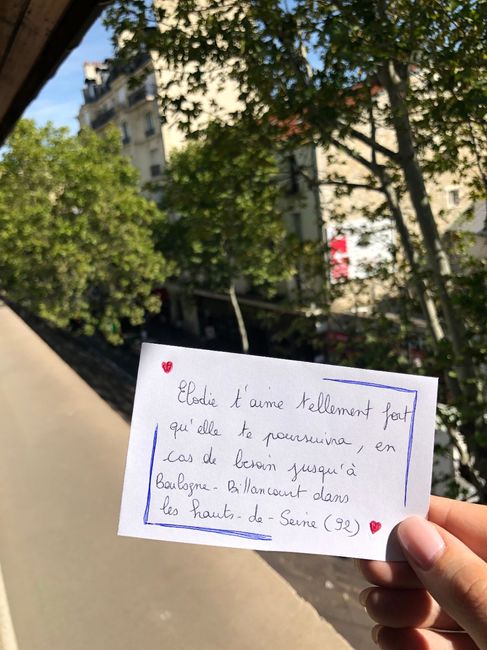 Elodie t'aime tellement fort
qu'elle te poursuivra, en
cas de besoin jusqu'à
Boulogne-Billancourt dans
les hauts-de-Seine (92)